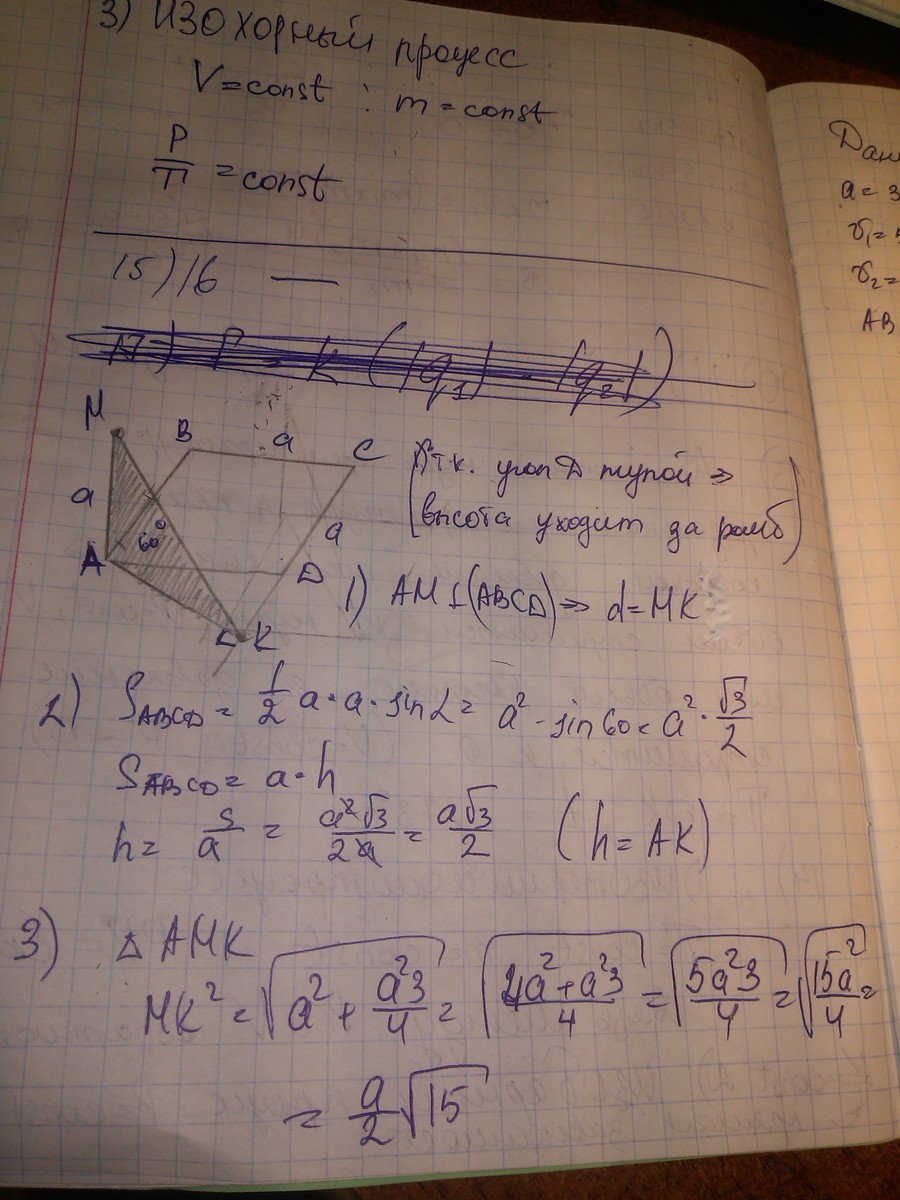 3) ИЗОХорный процесс
V=const : m=const
P/T = const
15) 16 —
M
B
a
C
a
a
60°
A
D
K
т.к. угол D тупой ⇒
высота уходит за ромб)
1) AM⊥(ABCD) ⇒ d=MK
2) S_ABCD = 1/2 a·a·sin∠ = a²·sin60 = a²·√3/2
S_ABCD = a·h
h = S/a = a²√3/2a = a√3/2 (h=AK)
3) △ AMK
MK² = √(a² + a²3/4) = √((4a²+a²3)/4) = √(5a²3/4) = √(15a²/4) =
= a/2 √15
Дан
a = 3
v₁ =
v₂ =
AB